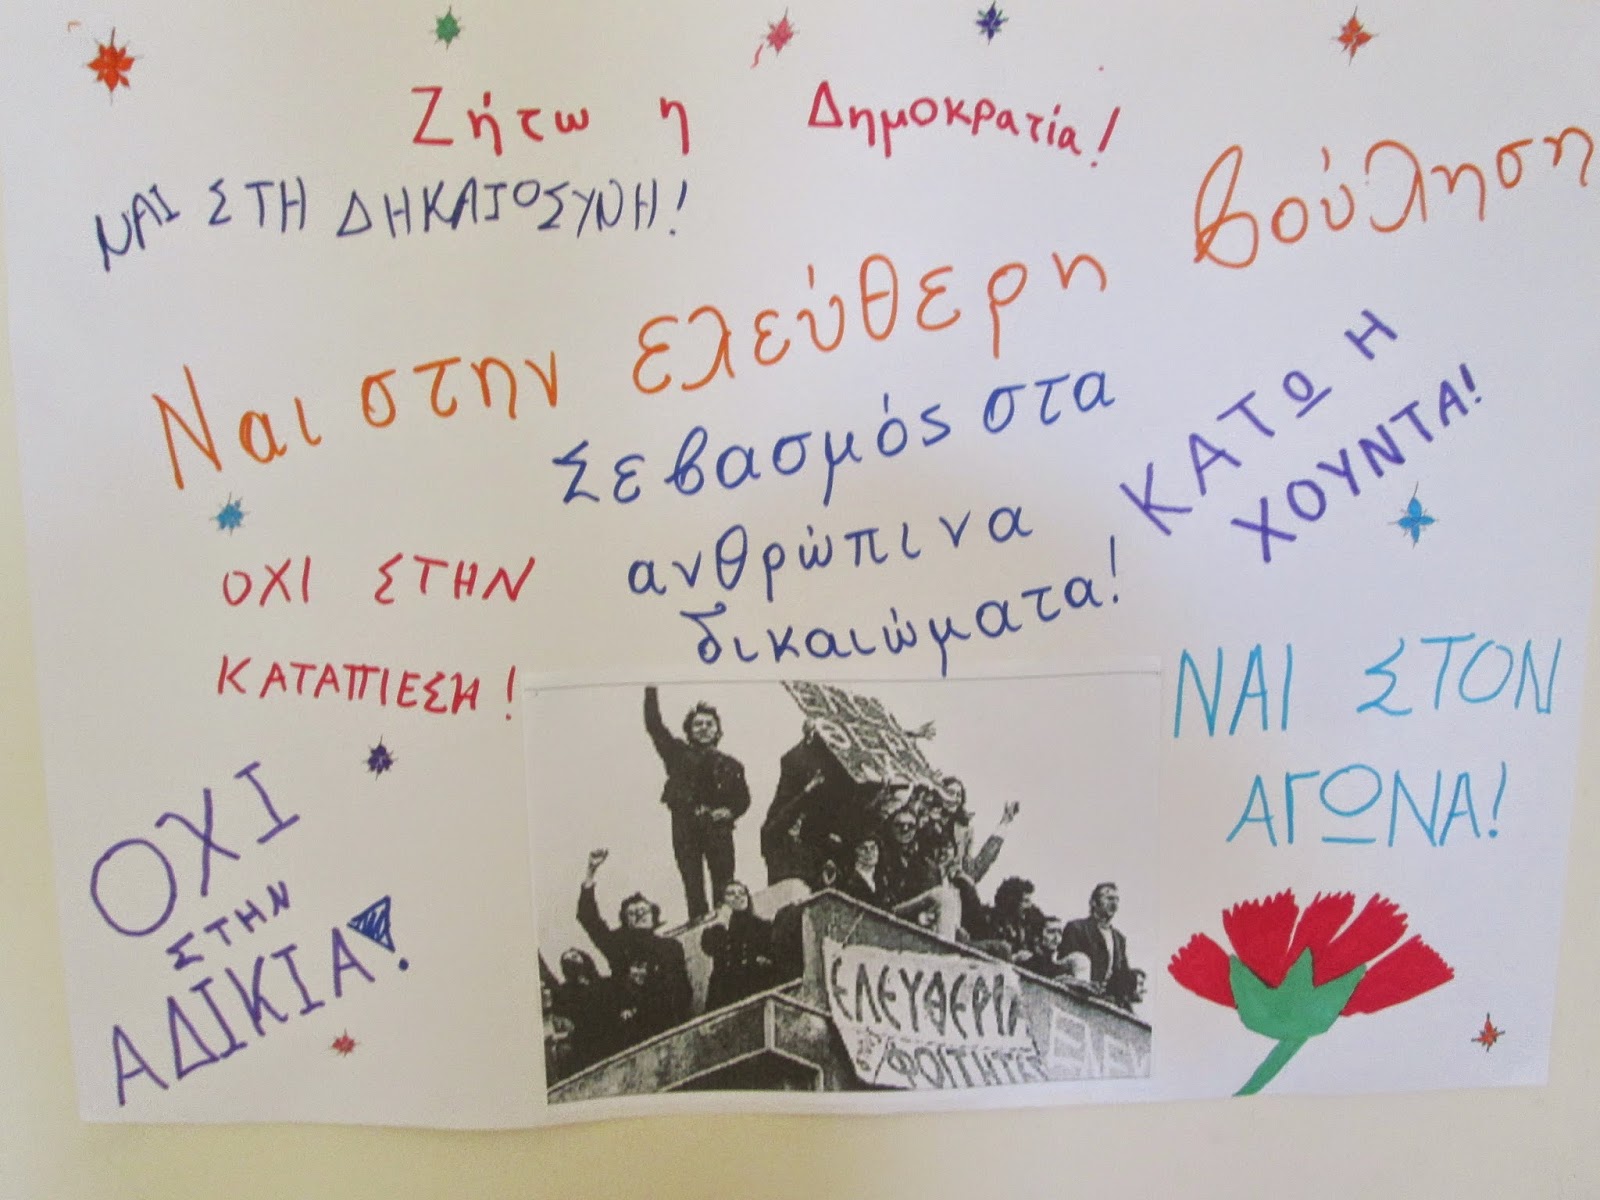 Ζήτω η Δημοκρατία!
ΝΑΙ ΣΤΗ ΔΗΚΑΙΟΣΥΝΗ!
Ναι στην ελεύθερη βούληση
Σεβασμός στα
ανθρώπινα
δικαιώματα!
ΚΑΤΩ Η
ΧΟΥΝΤΑ!
ΟΧΙ ΣΤΗΝ
ΚΑΤΑΠΙΕΣΗ!
ΝΑΙ ΣΤΟΝ
ΑΓΩΝΑ!
ΟΧΙ
ΣΤΗΝ
ΑΔΙΚΙΑ!
ΕΛΕΥΘΕΡΙΑ
ΦΟΙΤΗΤΕΣ
ΕΛΕΥ